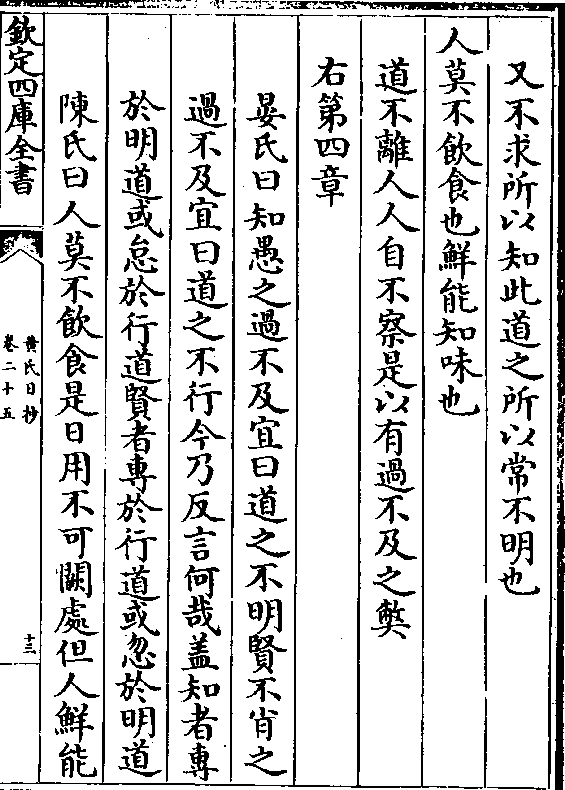 又不求所以知此道之所以常不明也
人莫不飲食也鮮能知味也
道不離人人自不察是以有過不及之弊
右第四章
晏氏曰知愚之過不及宜曰道之不明賢不肖之
過不及宜曰道之不行今乃反言何哉盖知者專
於明道或怠於行道賢者專於行道或忽於明道
陳氏曰人莫不飲食是日用不可闕處但人鮮能
欽定四庫全書
黄氏日抄
卷二十五
十三